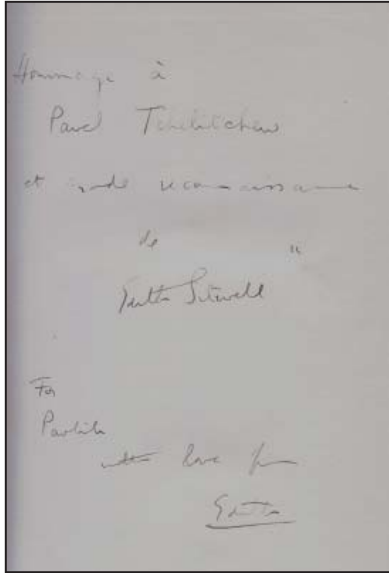 Hommage à
Pavel Tchelitchew
et grande reconnaissance
de "
Edith Sitwell
For
Pavlik
with love from
Edith